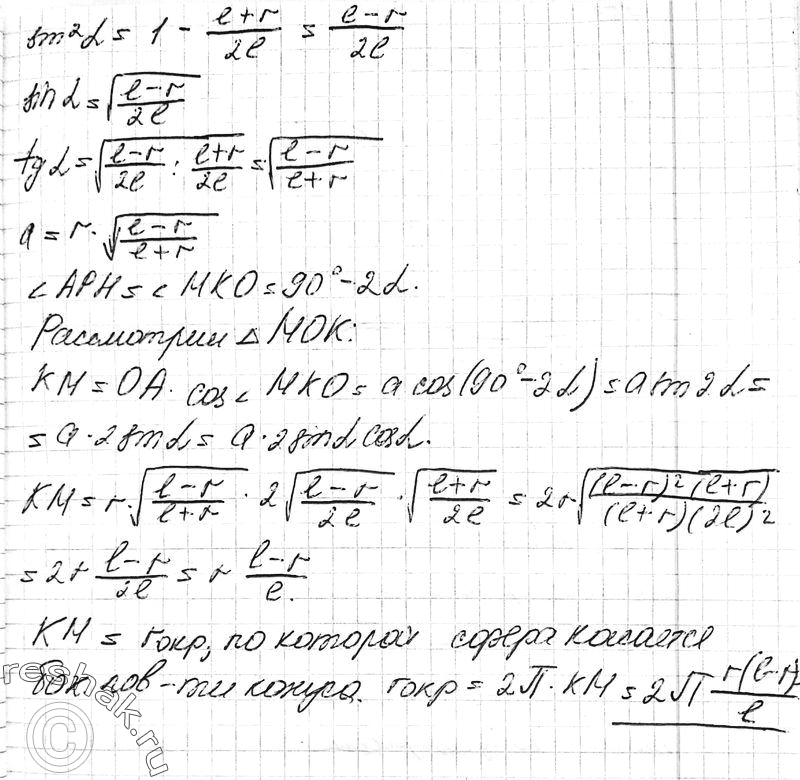 sin²α = 1 - (l+r)/(2l) = (l-r)/(2l)
sin α = √((l-r)/(2l))
tg α = √((l-r)/(2l) : (l+r)/(2l)) = √((l-r)/(l+r))
a = r·√((l-r)/(l+r))
∠APH = ∠MKO = 90° - 2α.
Рассмотрим △MOK:
KM = OA · cos∠MKO = a cos(90° - 2α) = a sin 2α =
= a · 2 sin α = a · 2 sin α cos α.
KM = r·√((l-r)/(l+r)) · 2√((l-r)/(2l)) · √((l+r)/(2l)) = 2r√((l-r)²(l+r)/((l+r)(2l)²))
= 2r (l-r)/(2l) = r (l-r)/l.
KM = rокр, по которой сфера касается
бок. пов-ти конуса. rокр = 2П · KM = 2П r(l-r)/l
reshak.ru